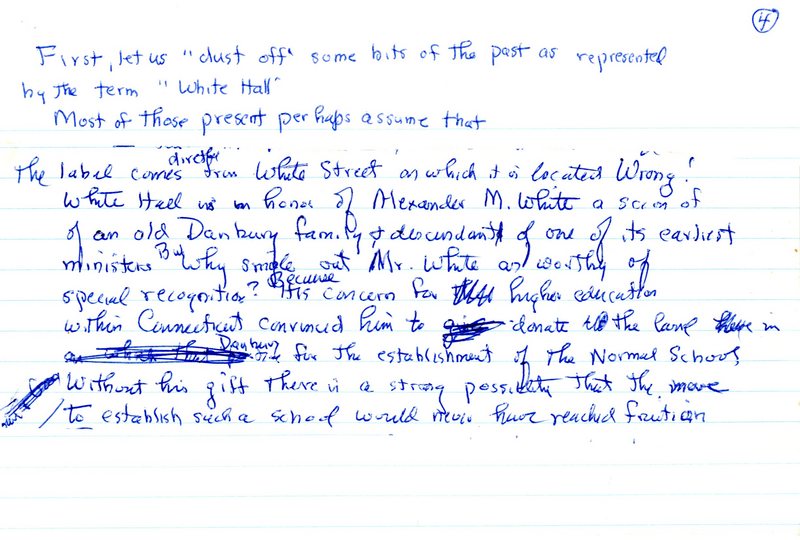 4
First, let us "dust off" some bits of the past as represented
by the term "White Hall"
Most of those present perhaps assume that
The label comes directly from White Street on which it is located Wrong!
White Hall is in honor of Alexander M. White a scion of
of an old Danbury family & descendant of one of its earliest
ministers But Why single out Mr. White as worthy of
special recognition? Because His concern for higher education
within Connecticut convinced him to donate the land in
Danbury for the establishment of The Normal School,
Without his gift There is a strong possibility That the move
to establish such a school would never have reached fruition